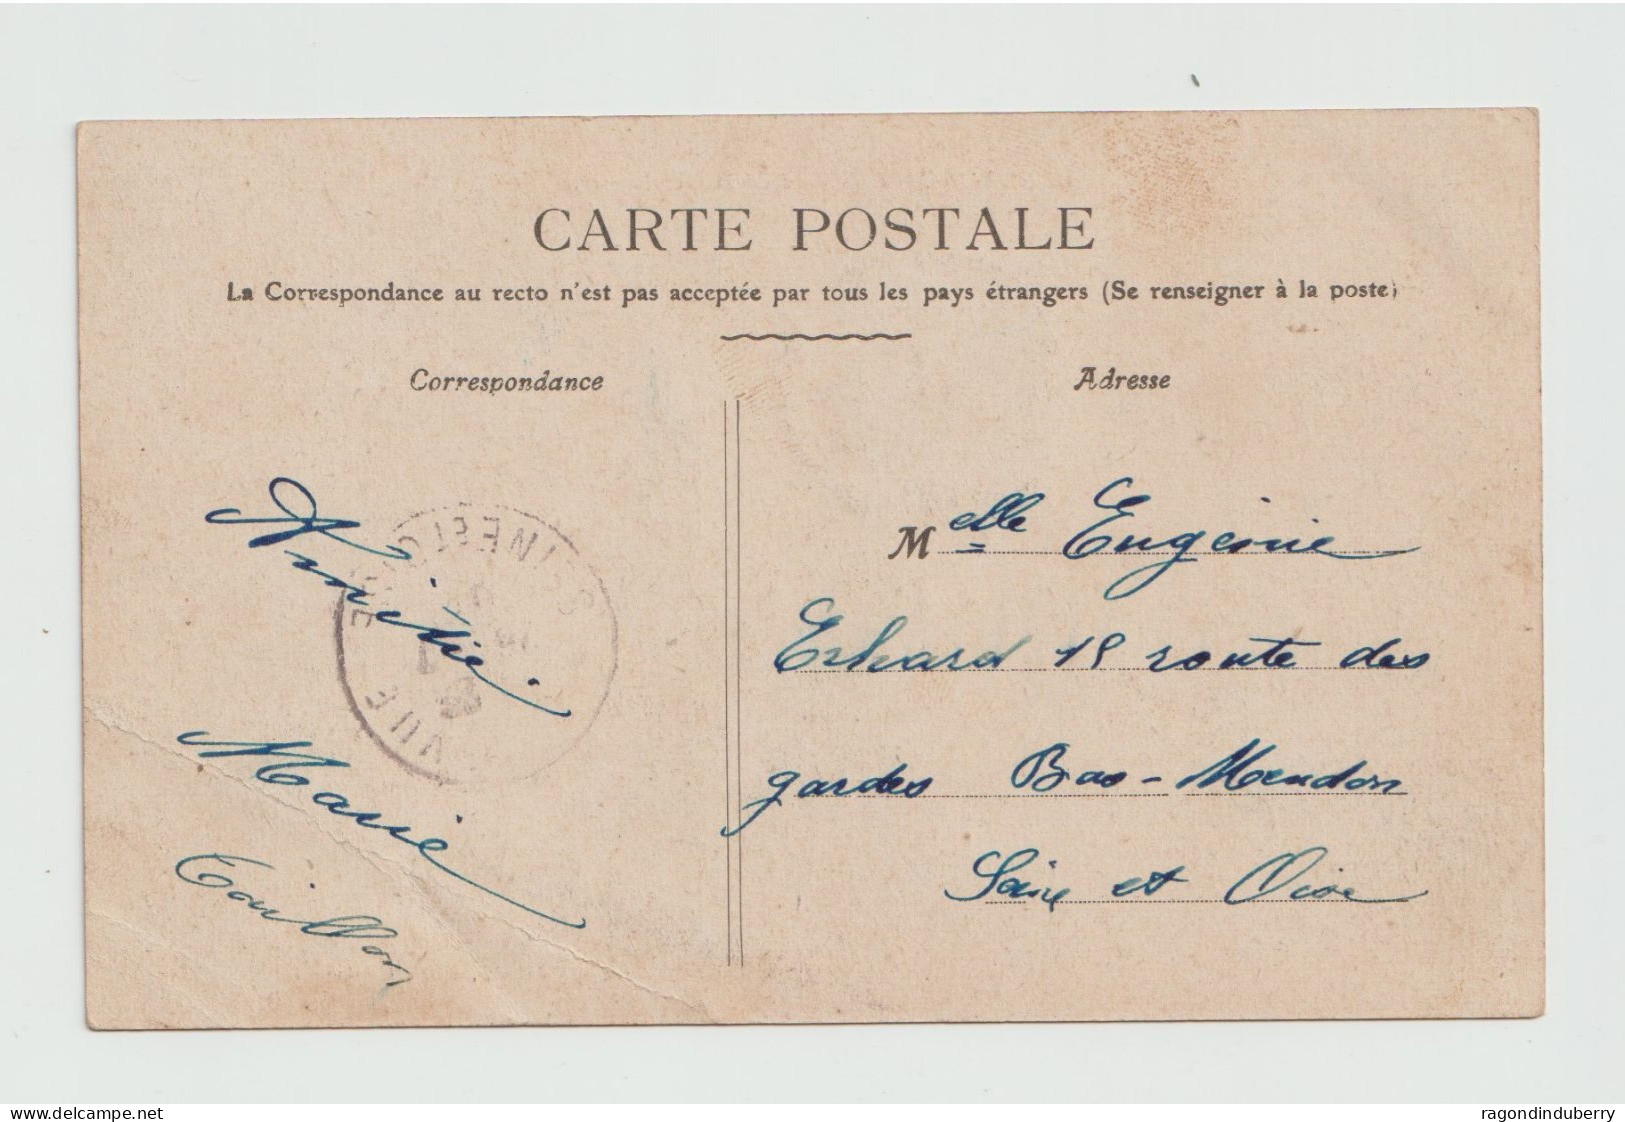 CARTE POSTALE
La Correspondance au recto n'est pas acceptée par tous les pays étrangers (Se renseigner à la poste)
Correspondance
Amitié.
Marie
Taillon
Adresse
Melle Eugénie
Erhard 19 route des
gardes Bas-Meudon
Seine et Oise
www.delcampe.net
ragondinduberry